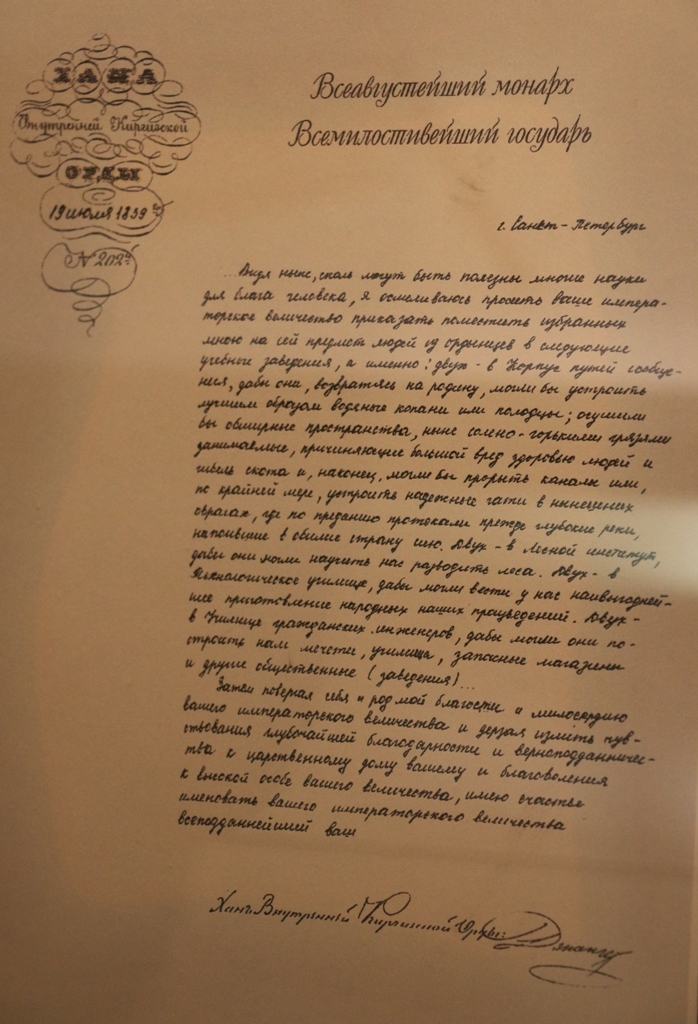 ХАНА
Внутренней Киргизской
ОРДЫ
19 июля 1839 г.
№ 202й
Всеавгустейший монарх
Всемилостивейший государь
г. Санкт-Петербург
...Видя ныне, столь могут быть полезны многие науки
для блага человека, я осмеливаюсь просить ваше импера-
торское величество приказать поместить избранных
мною на сей предмет людей из ордынцев в следующие
учебные заведения, а именно: двух - в Корпус путей сообще-
ния, дабы они, возвратясь на родину, могли бы устроить
лучшим образом водяные копани или колодцы; осушили
бы обширные пространства, ныне солено-горькими грязями
занимаемые, причиняющие большой вред здоровью людей и
гибель скота и, наконец, могли бы прорыть каналы или,
по крайней мере, устроить надежные гати в нынешних
оврагах, где по преданию протекали прежде глубокие реки,
напоившие в обилие страну сию. Двух - в Лесной институт,
дабы они могли научить нас разводить леса. Двух - в
Технологическое училище, дабы могли вести у нас наивыгодней-
шее приготовление народных наших произведений. Двух -
в Училище гражданских инженеров, дабы могли они по-
строить нам мечети, училища, запасные магазины
и другие общественные (заведения)...
Затем поверяя себя и род мой благости и милосердию
вашего императорского величества и дерзая излить чув-
ствования глубочайшей благодарности и верноподданничес-
тва к царственному дому вашему и благоволения
к высокой особе вашего величества, имею счастье
именовать вашего императорского величества
всеподданнейший ваш
Ханъ Внутренней Киргизской Орды: Джангер